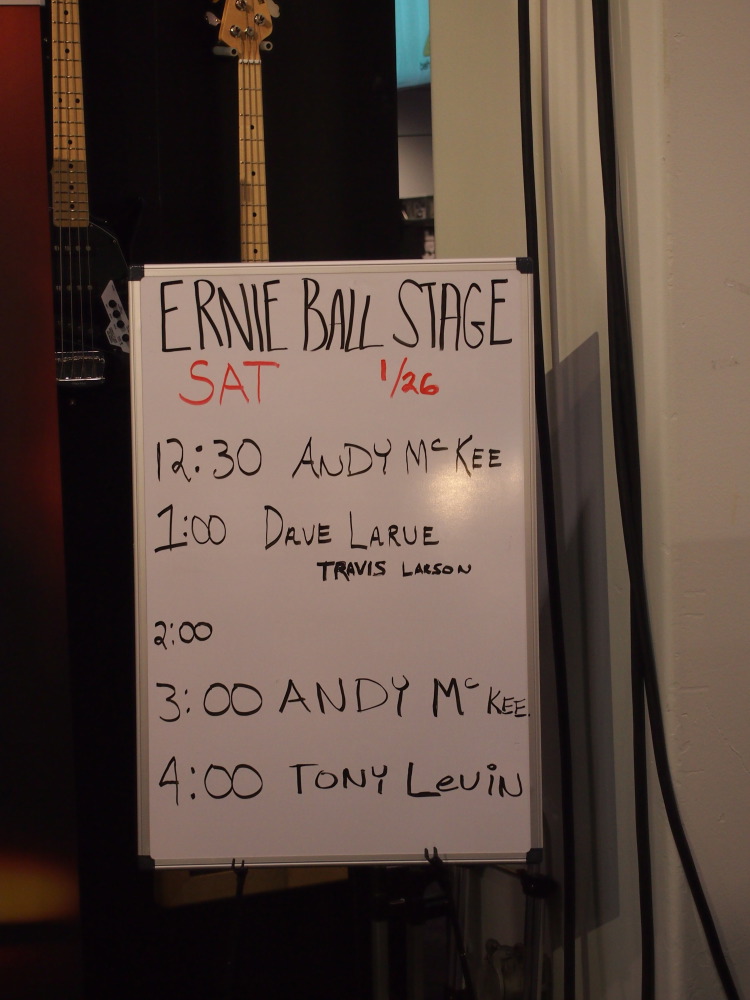 ERNIE BALL STAGE
SAT 1/26
12:30 ANDY McKEE
1:00 DAVE LARUE
TRAVIS LARSON
2:00
3:00 ANDY McKEE
4:00 TONY LEViN